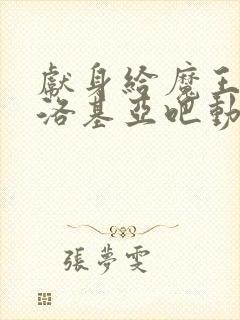 獻身給魔王
洛基亞吧動
張夢雯